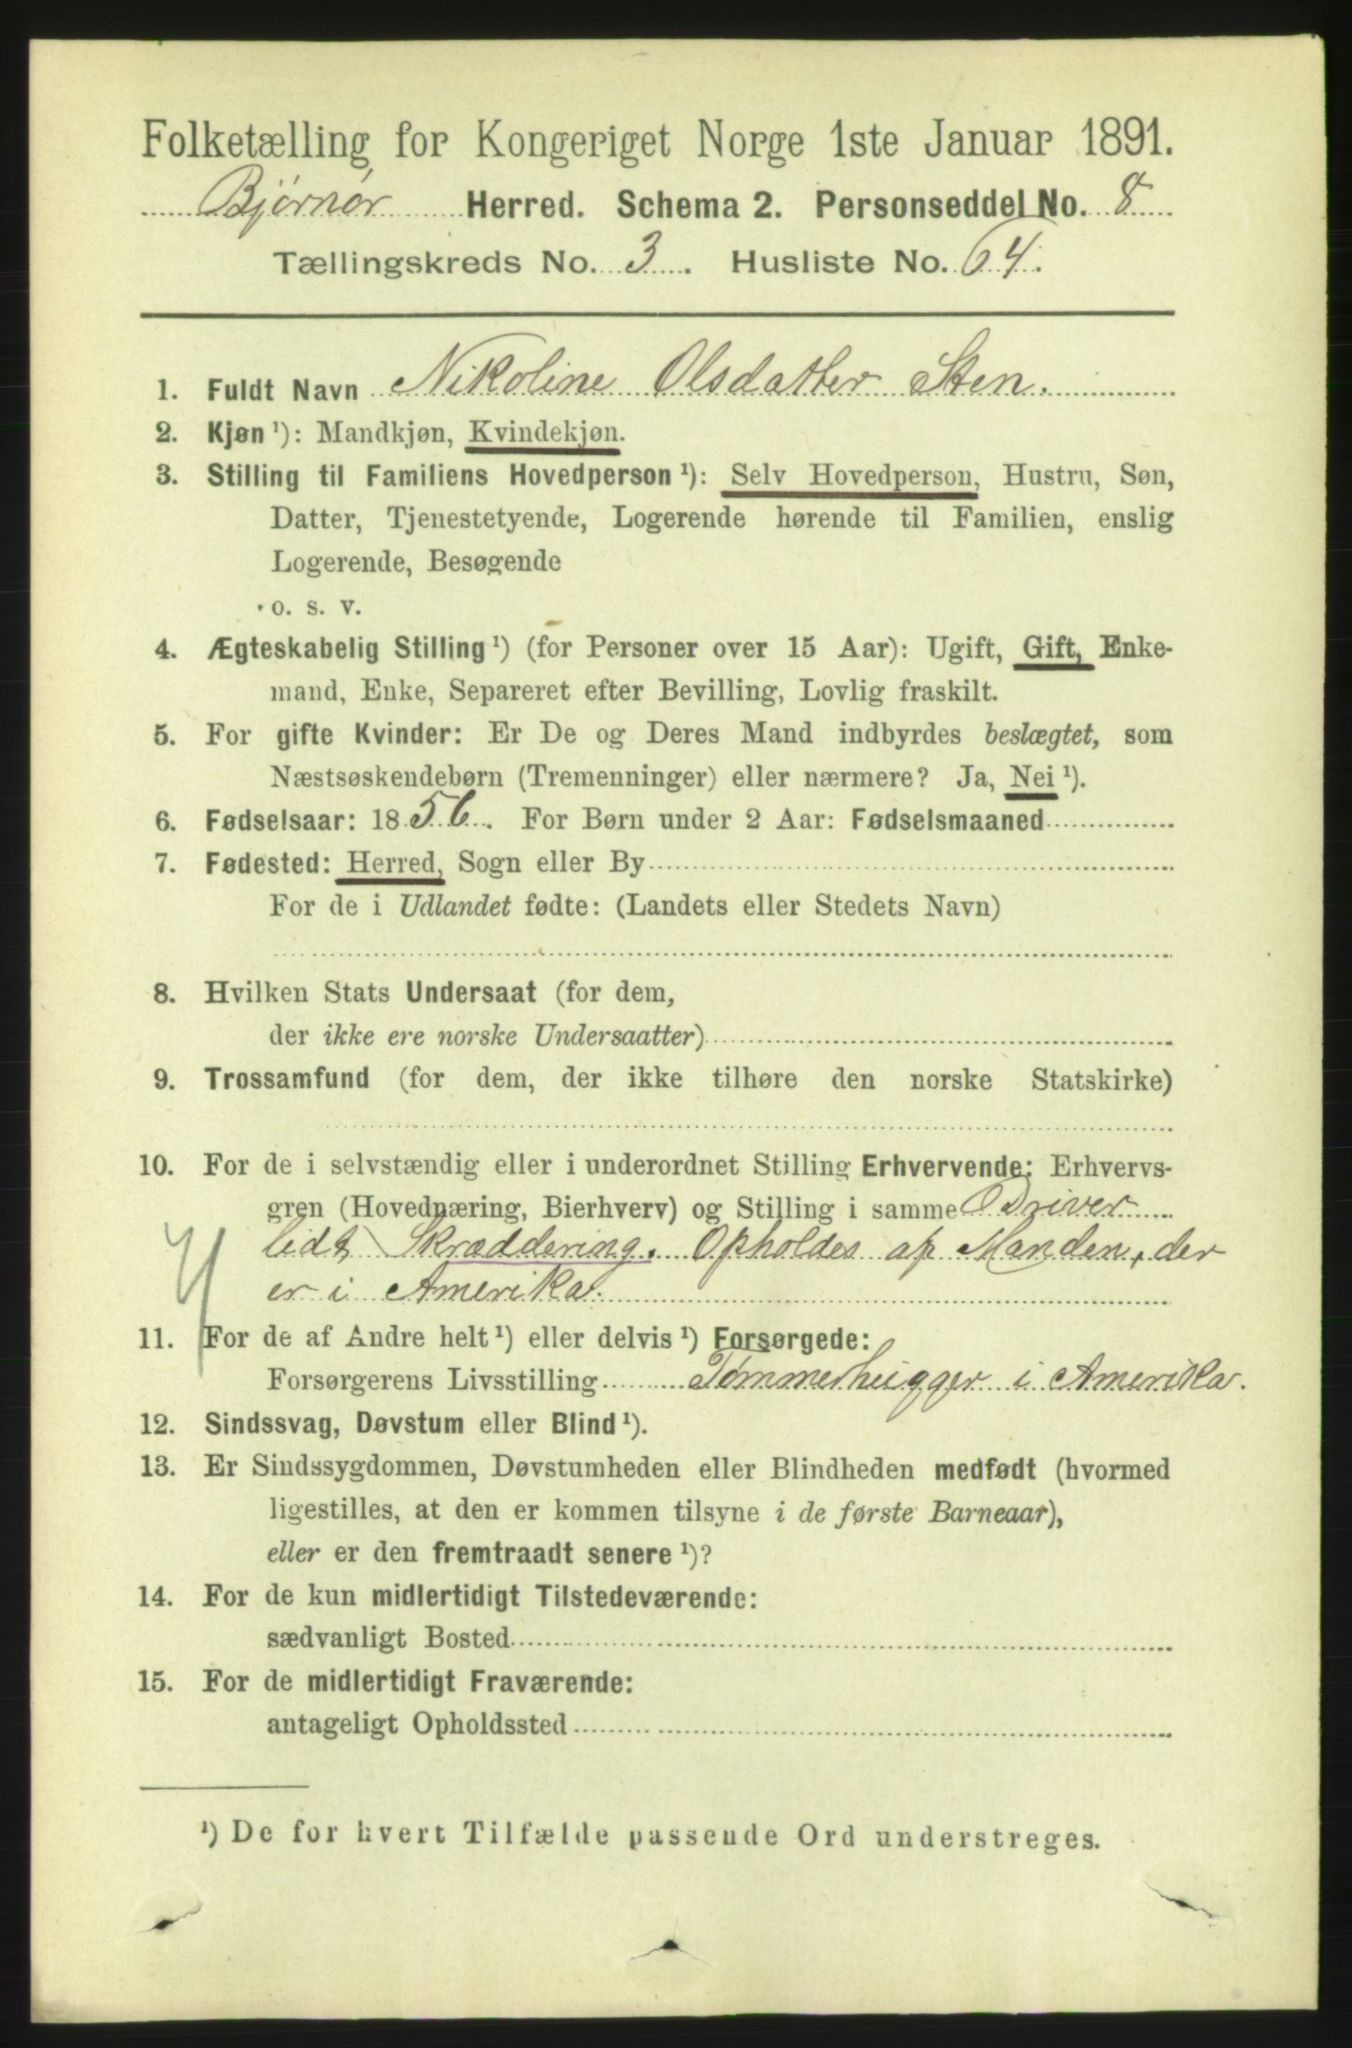 Folketælling for Kongeriget Norge 1ste Januar 1891.
Bjørnør Herred. Schema 2. Personseddel No. 8
Tællingskreds No. 3. Husliste No. 64.
1. Fuldt Navn Nikoline Olsdatter Sten.
2. Kjøn ¹): Mandkjøn, Kvindekjøn.
3. Stilling til Familiens Hovedperson ¹): Selv Hovedperson, Hustru, Søn,
Datter, Tjenestetyende, Logerende hørende til Familien, enslig
Logerende, Besøgende
o. s. v.
4. Ægteskabelig Stilling ¹) (for Personer over 15 Aar): Ugift, Gift, Enke-
mand, Enke, Separeret efter Bevilling, Lovlig fraskilt.
5. For gifte Kvinder: Er De og Deres Mand indbyrdes beslægtet, som
Næstsøskendebørn (Tremenninger) eller nærmere? Ja, Nei ¹).
6. Fødselsaar: 1856. For Børn under 2 Aar: Fødselsmaaned
7. Fødested: Herred, Sogn eller By
For de i Udlandet fødte: (Landets eller Stedets Navn)
8. Hvilken Stats Undersaat (for dem,
der ikke ere norske Undersaatter)
9. Trossamfund (for dem, der ikke tilhøre den norske Statskirke)
10. For de i selvstændig eller i underordnet Stilling Erhvervende: Erhvervs-
gren (Hovednæring, Bierhverv) og Stilling i samme Driver
lidt Skræddering. Opholdes af Manden, der
er i Amerika.
11. For de af Andre helt ¹) eller delvis ¹) Forsørgede:
Forsørgerens Livsstilling Tømmerhugger i Amerika.
12. Sindssvag, Døvstum eller Blind ¹).
13. Er Sindssygdommen, Døvstumheden eller Blindheden medfødt (hvormed
ligestilles, at den er kommen tilsyne i de første Barneaar),
eller er den fremtraadt senere ¹)?
14. For de kun midlertidigt Tilstedeværende:
sædvanligt Bosted
15. For de midlertidigt Fraværende:
antageligt Opholdssted
¹) De for hvert Tilfælde passende Ord understreges.